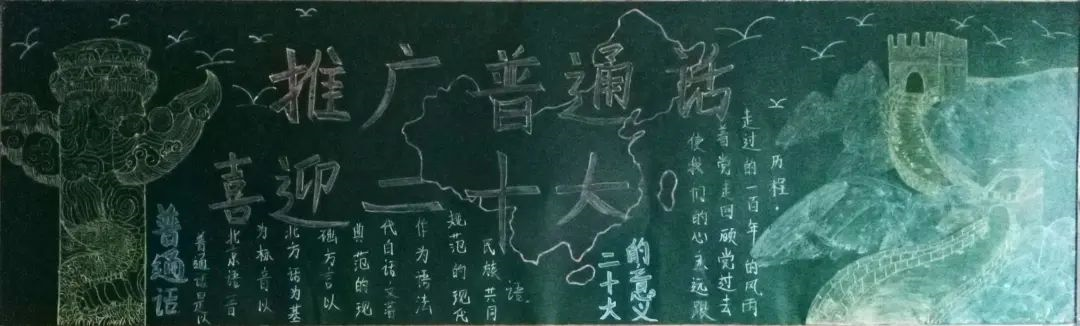 推广普通话
喜迎二十大
普通话
普通话是以
北京语音
为标音以
北方话为基
础方言以
典范的现
代白话文著
作为语法
规范的现代
民族共同
语。
二十大
的意义
使我们的心永远跟
着党走回顾党过去
走过的一百年的风雨
历程.